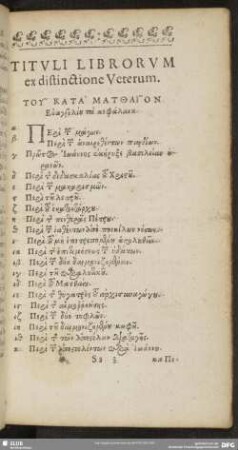 TITVLI LIBRORVM
ex distinctione Veterum.
ΤΟΥ ΚΑΤΑ ΜΑΤΘΑΙΟΝ
Εὐαγγελίου τὰ κεφάλαια.
α Περὶ τ μάγων.
β Περὶ τ ἀναιρεθέντων παιδίων.
γ Πρῶτον Ἰωάννης ἐκήρυξε βασιλείαν οὐρανῶν.
δ Περὶ τ διδασκαλίας
ε Περὶ τ μακαρισμῶν.
ς Περὶ τοῦ λεπροῦ.
ζ Περὶ τοῦ ἑκατοντάρχου.
η Περὶ τ πενθερᾶς Πέτρου.
θ Περὶ τ ἰαθέντων ἀπὸ ποικίλων νόσων.
ι Περὶ τοῦ μὴ ἐπιτρεπομένου ἀκολουθεῖν.
ια Περὶ τ ἐπιτιμήσεως τ ὑδάτων.
ιβ Περὶ τ δύο δαιμονιζομένων.
ιγ Περὶ τοῦ παραλυτικοῦ.
ιδ Περὶ τοῦ Ματθαίου.
ιε Περὶ τ θυγατρὸς τοῦ ἀρχισυναγώγου.
ις Περὶ τ αἱμοῤῥούσης.
ιζ Περὶ τ δύο τυφλῶν.
ιη Περὶ τοῦ δαιμονιζομένου κωφοῦ.
ιθ Περὶ τ τῶν ἀποστόλων διαταγῆς.
κ Περὶ τ ἀποσταλέντων παρὰ Ἰωάννου.
κα Πε-